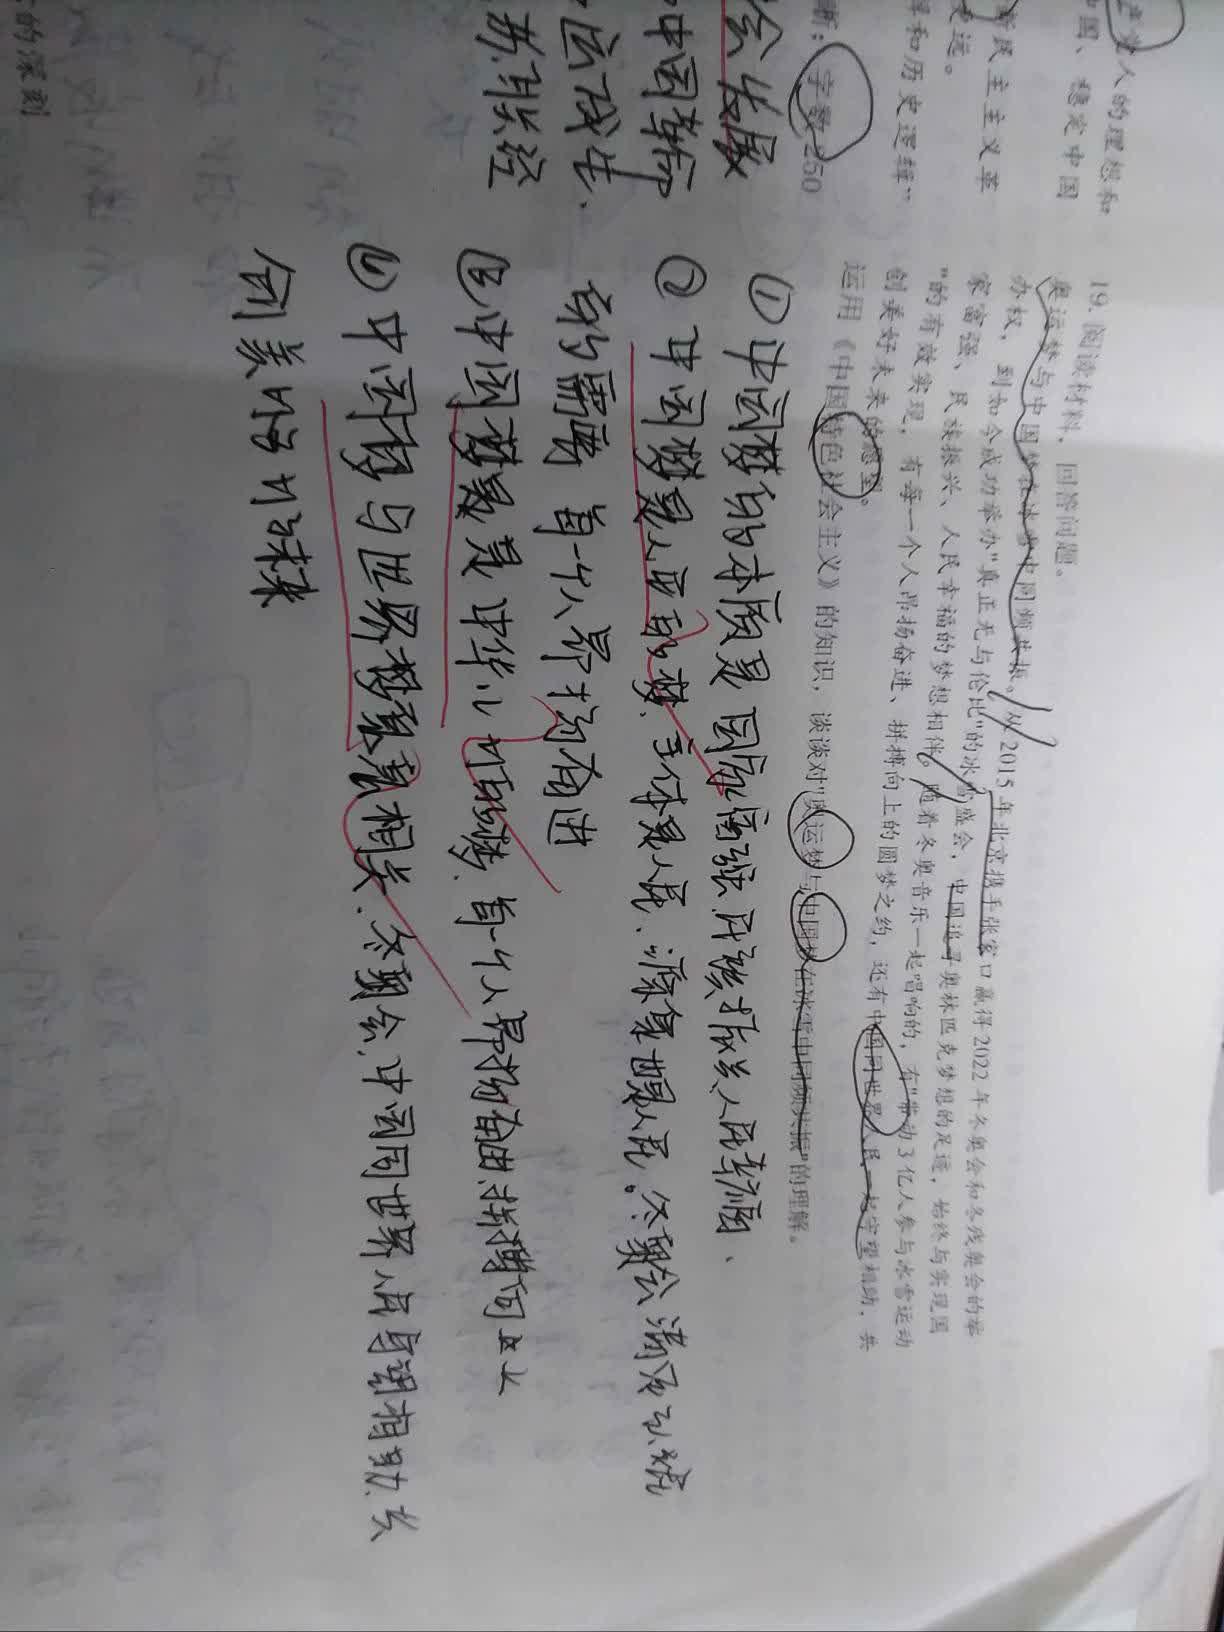 产党人的理想和
中国、稳定中国
新民主主义革
更远。
择和历史逻辑”
晰；字数250
会发展
中国新
运成生、
为引张经
19. 阅读材料，回答问题。
奥运梦与中国梦在冰雪中同频共振。从2015年北京携手张家口赢得2022年冬奥会和冬残奥会的举
办权，到如今成功举办“真正无与伦比”的冰雪盛会，中国追寻奥林匹克梦想的足迹，始终与实现国
家富强、民族振兴、人民幸福的梦想相伴。随着冬奥音乐一起唱响的，有“带动3亿人参与冰雪运动
”的有效实现，有每一个人昂扬奋进、拼搏向上的圆梦之约，还有中国同世界人民一起守望相助、共
创美好未来的愿望。
运用《中国特色社会主义》的知识，谈谈对“奥运梦与中国梦在冰雪中同频共振”的理解。
①中国梦的本质是国家富强民族振兴、人民幸福、
②中国梦是人民的梦、主体是人民、源自人民。冬奥会满足人民
的需要 每一个人昂扬奋进
③中国梦是中华儿女的梦、每一个人昂扬奋进拼搏向上
④中国梦与世界梦息息相关、冬奥会、中国同世界人民守望相助、共
创美好的未来
的深刻